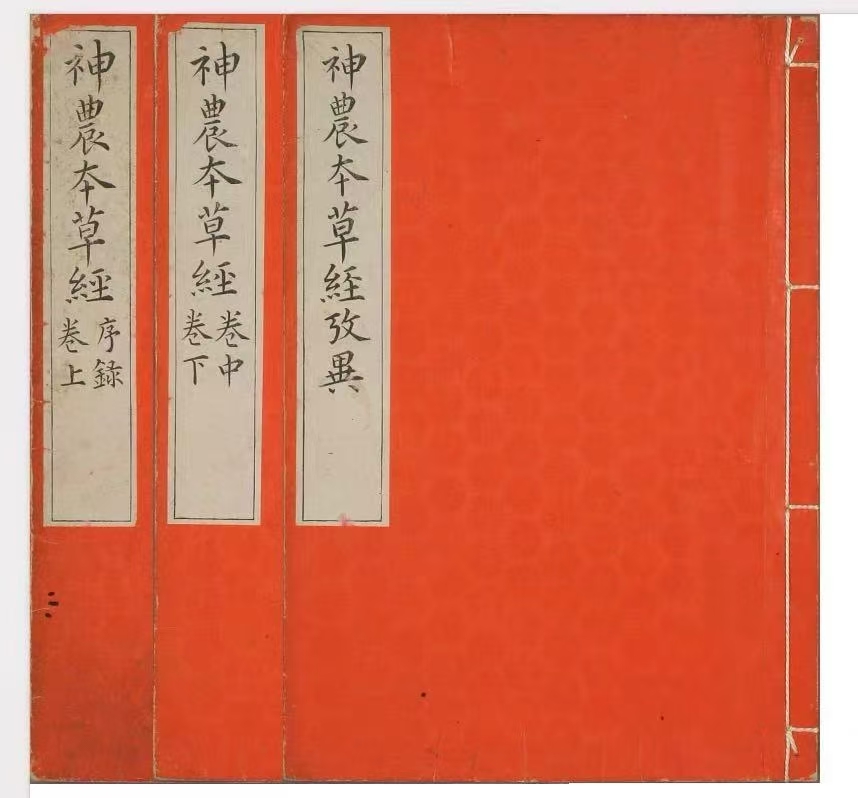 神農本草經攷異
神農本草經
卷中
卷下
神農本草經
序録
卷上